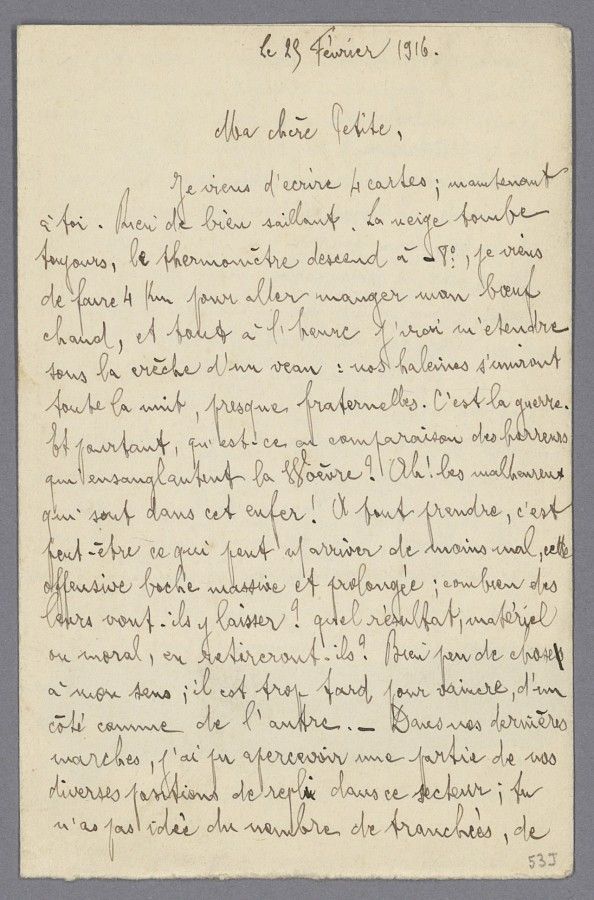 Le 25 Février 1916.
Ma chère Petite,
Je viens d'ecrire 4 cartes ; maintenant
à toi. Rien de bien saillant. La neige tombe
toujours, le thermomètre descend à -8°, je viens
de faire 4 Km pour aller manger mon bœuf
chaud, et tout à l'heure j'irai m'etendre
sous la crèche d'un veau : nos haleines s'uniront
toute la nuit, presque fraternelles. C'est la guerre.
Et pourtant, qu'est-ce en comparaison des horreurs
qui ensanglantent la Woëvre ? Ah! les malheureux
qui sont dans cet enfer ! A tout prendre, c'est
peut-être ce qui peut arriver de moins mal, cette
offensive boche massive et prolongée ; combien des
leurs vont-ils y laisser ? quel résultat, matériel
ou moral, en retireront-ils ? Bien peu de choses
à mon sens ; il est trop tard pour vaincre, d'un
côté comme de l'autre. — Dans nos dernières
marches, j'ai pu apercevoir une partie de nos
diverses positions de repli dans ce secteur ; tu
n'as pas idée du nombre de tranchées, de
53J